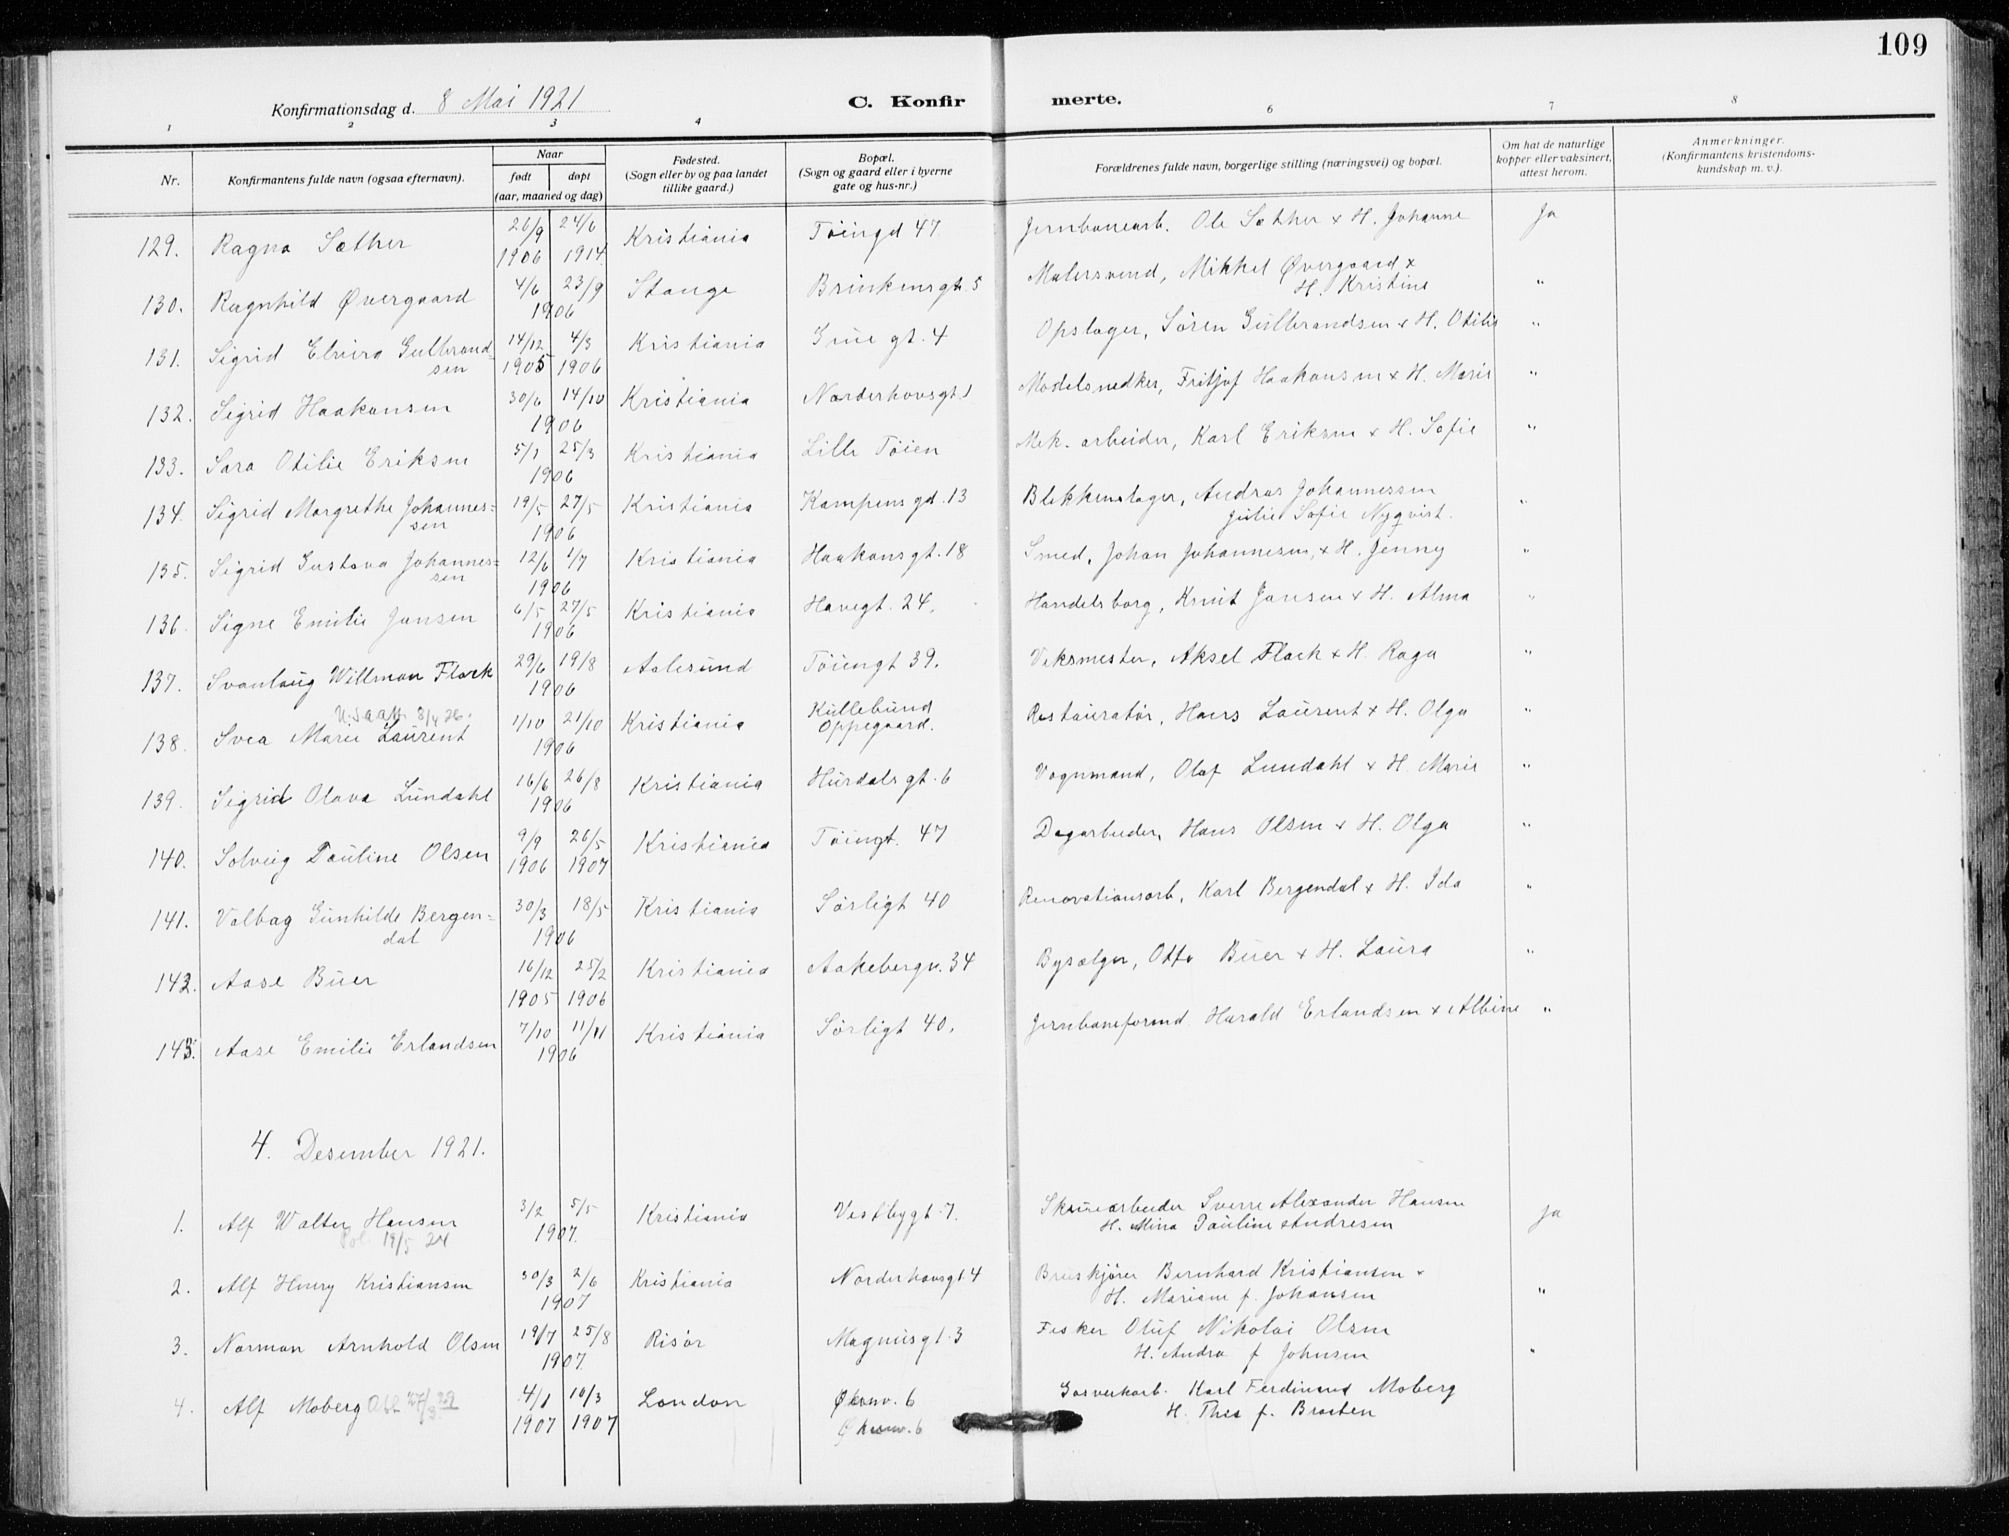 109
Konfirmationsdag d. 8 Mai 1921
C. Konfir merte.
1 2 3 4 6 7 8
Nr.
Konfirmantens fulde navn (ogsaa efternavn).
Naar
født døpt
(aar, maaned og dag)
Fødested.
(Sogn eller by og paa landet
tillike gaard.)
Bopæl.
(Sogn og gaard eller i byerne
gate og hus-nr.)
Forældrenes fulde navn, borgerlige stilling (næringsvei) og bopæl.
Om hat de naturlige
kopper eller vaksinert,
attest herom.
Anmerkninger.
(Konfirmantens kristendoms-
kundskap m. v.).
129. Ragna Sæther 26/9 1906 24/6 1914 Kristiania Töiengd 47. Jernbanearb. Ole Sæther + H. Johanne Ja
130. Ragnhild Øvergaard 4/6 23/9 1906 Stange Brinkensgt. 5 Malersvend, Mikkel Øvergaard +
H. Kristine "
131. Sigrid Elvira Gulbrand-
sen 14/12 1905 4/3 1906 Kristiania Grue gt. 4 Opslager, Sören Gulbrandsen + H. Otilie "
132. Sigrid Haakonsen 30/6 14/10 1906 Kristiania Norderhovsgt 1 Modelsnedker, Fritjof Haakonsen + H. Marie "
133. Sara Otilie Eriksen 5/1 25/3 1906 Kristiania Lille Töien Mek. arbeider, Karl Eriksen + H. Sofie "
134. Sigrid Margrethe Johannes=
sen 19/5 27/5 1906 Kristiania Kampens gd. 13 Blikkenslager, Andras Johannessen
Julie Sofie Nyqvist. "
135. Sigrid Gustava Johannes=
sen 12/6 1/7 1906 Kristiania Haakonsgt. 18 Smed, Johan Johannesen, + H. Jenny "
136. Signe Emilie Jansen 6/5 27/5 1906 Kristiania Havegt. 24. Handelsborg, Knut Jansen + H. Alma "
137. Svanlaug Willman Flack 29/6 19/8 1906 Aalesund Töiengt 39. Veksmester, Aksel Flack + H. Raga "
138. Svea Marie Laurent 1/10 21/10 1906 Kristiania Kullebund
Oppegaard. Restauratör, Hans Laurent + H. Olga "
139. Sigrid Olava Lundahl 16/6 26/8 1906 Kristiania Hurdals gt. 6 Vognmand, Olaf Lundahl + H. Marie "
140. Solveig Pauline Olsen 9/9 1906 26/5 1907 Kristiania Töiengt. 47 Dagarbeider, Hans Olsen + H. Olga "
141. Valbag Gunhilde Bergen-
dal 30/3 18/5 1906 Kristiania Sörligt 40 Renovationsarb, Karl Bergendal + H. Ida "
142. Aase Buer 16/12 1905 25/2 1906 Kristiania Aakebergv. 34 Bysælger, Otto Buer + H. Laura "
143. Aase Emilie Erlandsen 7/10 11/11 1906 Kristiania Sörligt 40. Jernbaneformd. Harald Erlandsen + Albine "
4. Desember 1921.
1. Alf Walter Hansen 3/2 5/5 1907. Kristiania Vestbygt. 7. Skruearbeider Sverre Alexander Hansen
H. Mina Pauline Andresen Ja
19/5 24
2. Alf Henry Kristiansen 30/3 2/6 1907 Kristiania Norderhovsgt. 4 Bruskjörer Bernhard Kristiansen +
H. Mariane f. Johansen "
3. Norman Arnhold Olsen 19/7 25/8 1907. Risör Magnusgt. 3 Fisker Oluf Nikolai Olsen
H. Andra f Johnsen "
4. Alf Moberg 4/1 1907 10/3 1907 London Økernv. 6
Økernv. 6 Gasverkarb. Karl Ferdinand Moberg
H. Thea f. Braaten